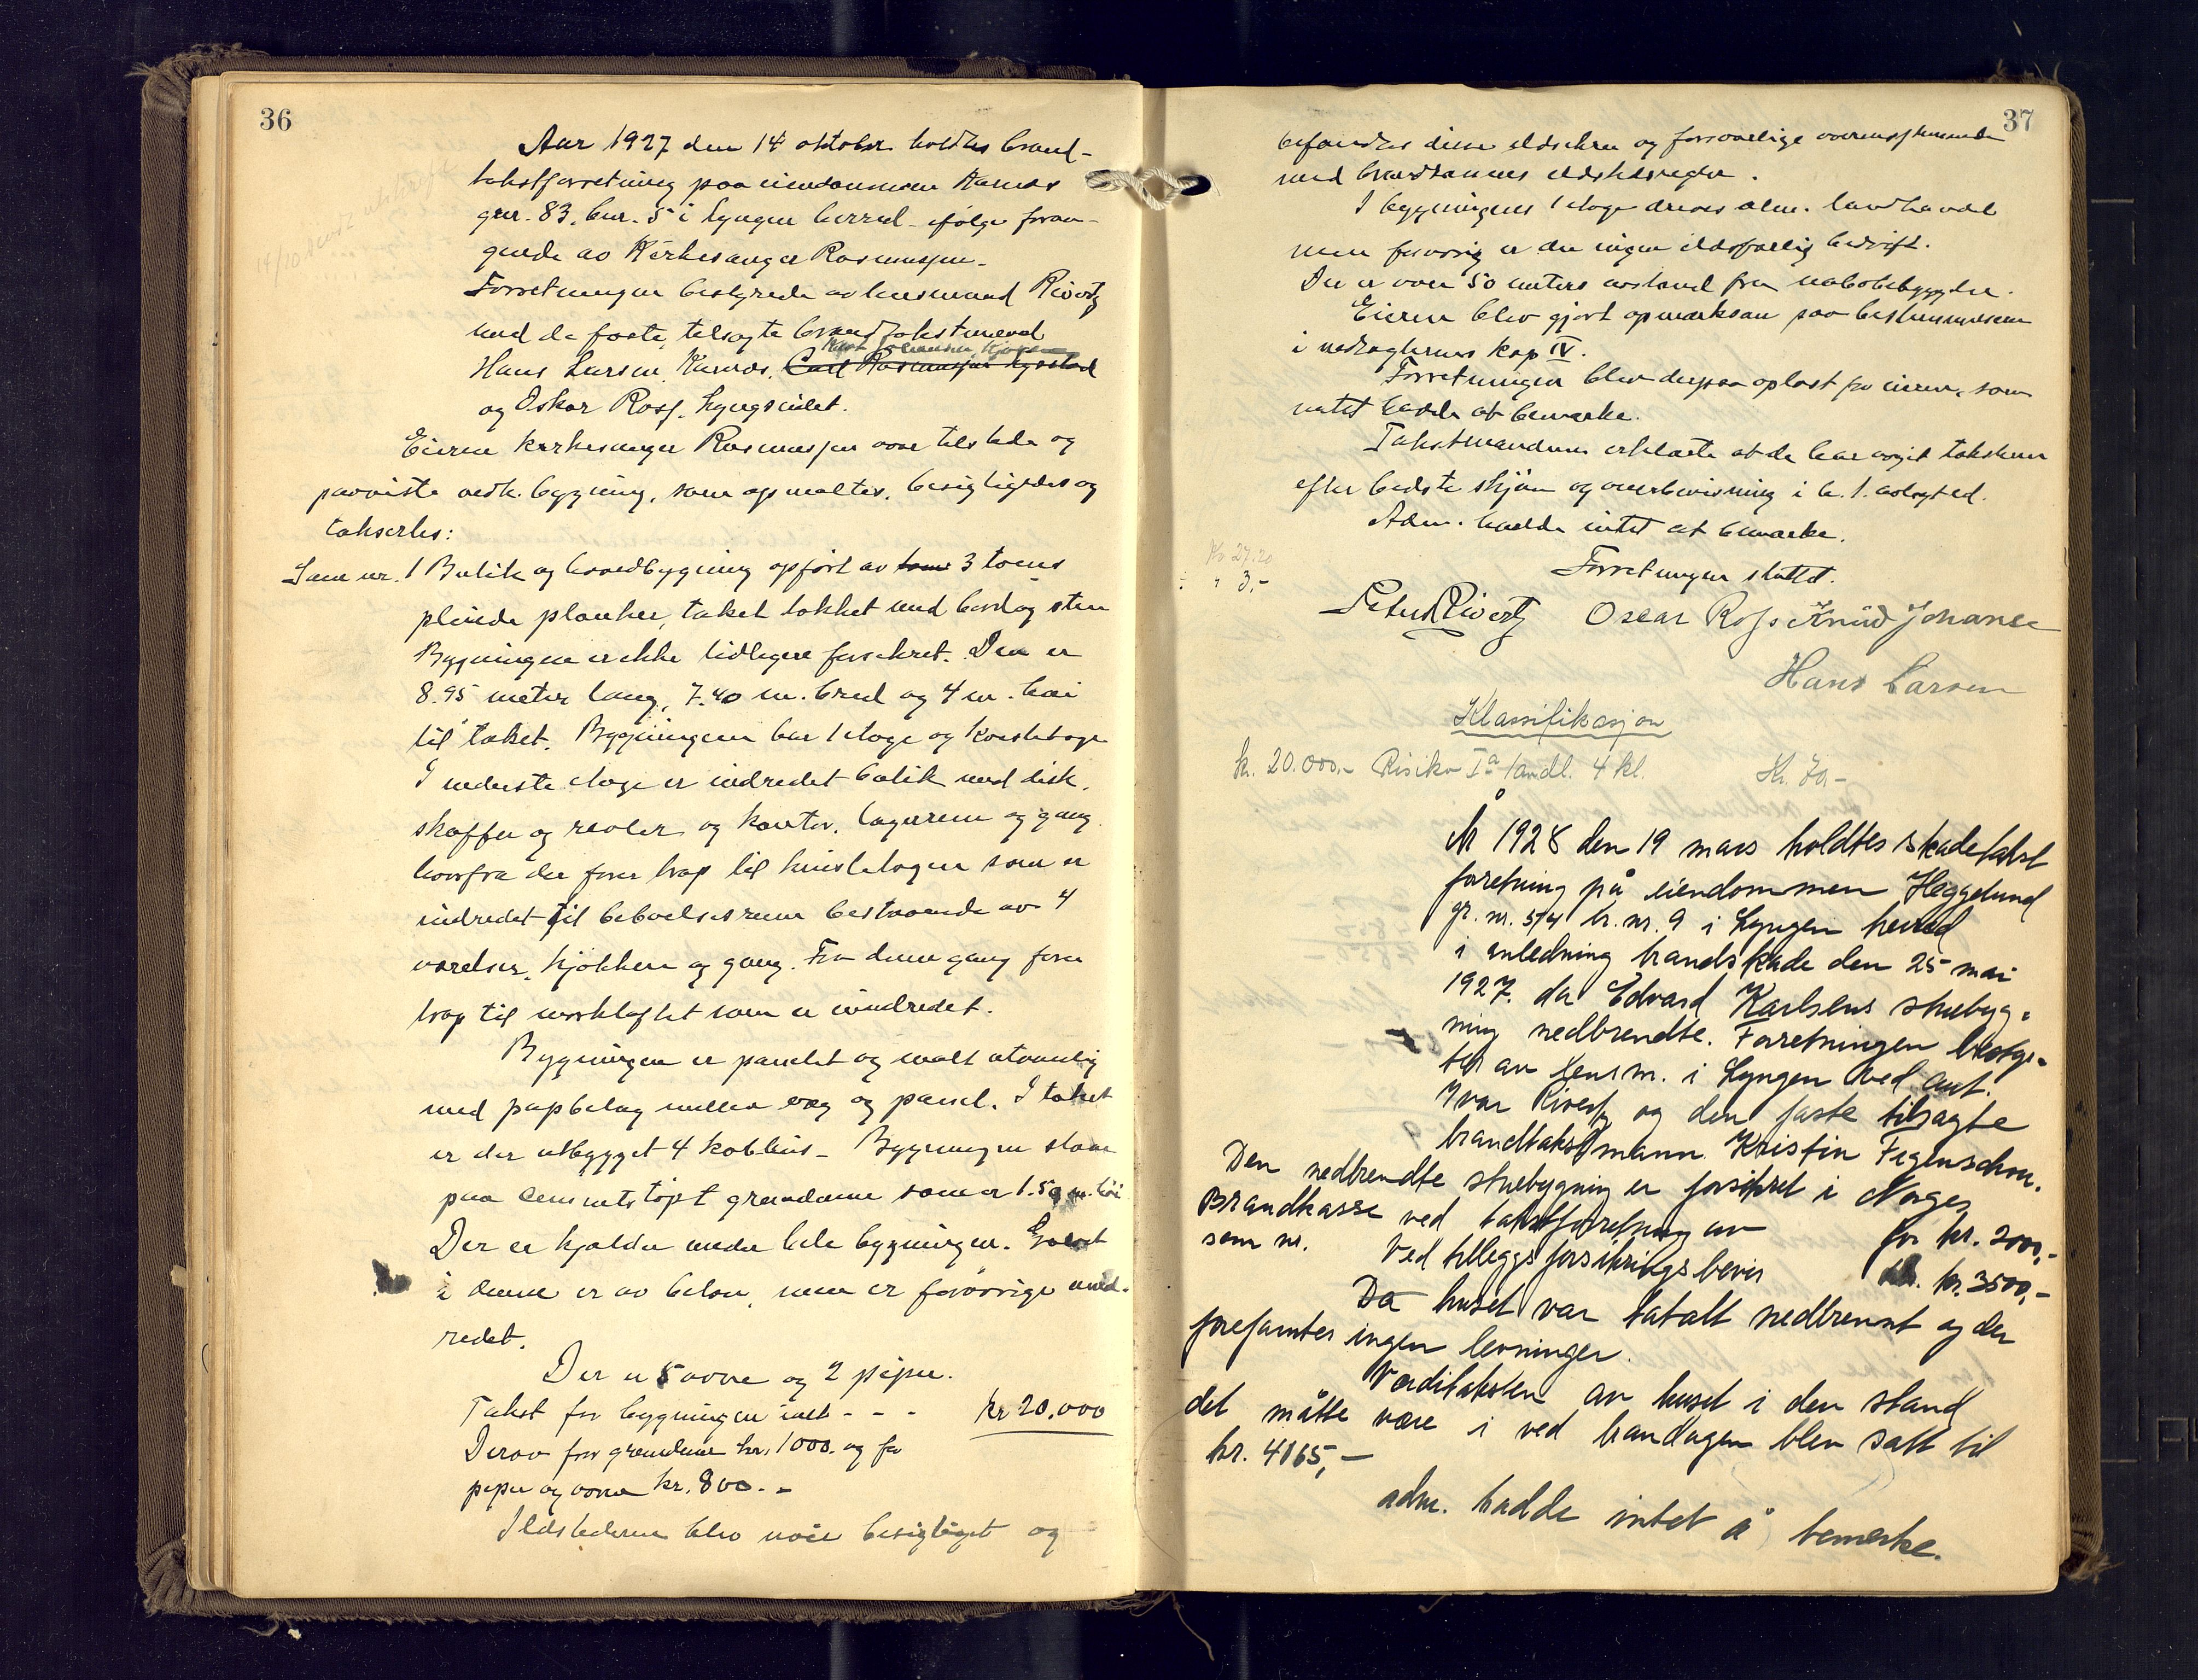 36
Aar 1927 den 14 oktober holdtes brand-
takstforretning paa eiendommen Karnes
gnr. 83. bnr. 5 i Lyngen herred ifølge foran-
gende av Kirkesanger Rasmussen.
Forretningen bestyredes av lensmand Rivertz
med de faste, tilsagte brandtakstmænd
Knut Johansen, Kjosen
Hans Larsen, Karnes, Carl Rasmussen
og Oskar Ross, Lyngseidet.
Eieren kirkesanger Rasmussen var tilstede og
paaviste vedk. bygning, som opmaaltes, besigtigedes og
taksertes:
Som nr. 1 Butik og hovedbygning opført av 3 toms
pløiede planker, taket tækket med bord og sten
Bygningen er ikke tidligere forsikret. Den er
8.95 meter lang, 7.40 m. bred og 4 m. høi
til taket. Bygningen har 1 etage og kvistetage
I nederste etage er indredet butik med disk,
skuffer og reoler og kontor, lagerrum og gang
hvorfra der fører trap til kvistetagen som er
indredet til beboelsesrum bestaaende av 4
værelser, kjøkken og gang. Fra denne gang fører
trap til mørkloftet som er uindredet.
Bygningen er panelt og malt utvendig
med papbelag mellem væg og panel. I taket
er der utbygget 4 kobbhus. Bygningen staar
paa cementstøpt grundmur som er 1.50 m. høi
Der er kjelder under hele bygningen. Gulvet
i denne er av beton, men er forøvrig uind-
redet.
Der er 5 ovne og 2 piper.
Takst for bygningen ialt - - - kr 20.000
Derav for grundmur kr. 1000. og for
piper og ovne kr. 800.-
Ildstederne blev nøie besigtiget og
37
befandtes disse ildsikre og forsvarlige overensstemmende
med brandkassens ildstedsregler.
I bygningens 1 etage drives alm. landhandel
men forøvrig er der ingen ildsfarlig bedrift.
Der er over 50 meters avstand fra nabobebyggelse.
Eieren blev gjort opmerksom paa bestemmelserne
i vedtægternes kap IV.
Forretningen blev derpaa oplæst for eieren, som
intet hadde at bemerke.
Takstmændene erklærte at de har avgit taksten
efter bedste skjøn og overbevisning i h. t. avlagt ed.
Adm. hadde intet at bemerke.
Kr 27.20
" 3,-
Forretningen sluttet.
Peter Rivertz Oscar Ross Knud Johansen
Hans Larsen
Klassifikasjon
kr. 20.000.- Risiko Ia landl. 4 kl. Kr. 70.-
År 1928 den 19 mars holdtes skadetakst
forretning på eiendommen Heggelund
gr. nr. 54 br. nr. 9 i Lyngen herred
i anledning brandskade den 25 mai
1927, da Edvard Karlsens stuebyg-
ning nedbrendte. Forretningen besty-
tes av lensm. i Lyngen ved aut.
Ivar Rivertz og den faste tilsagte
brandtakstmann Kristin Fegenschou.
Den nedbrendte stuebygning er forsikret i Norges
Brandkasse ved takstforretning av
som nr. for kr. 2000,-
Ved tilleggsforsikringsbevis kr. 3500,-
Da huset var totalt nedbrennt og der
forefantes ingen levninger.
Verditaksten av huset i den stand
det måtte være i ved brandagen blev satt til
kr. 4165,-
adm. hadde intet å bemerke.